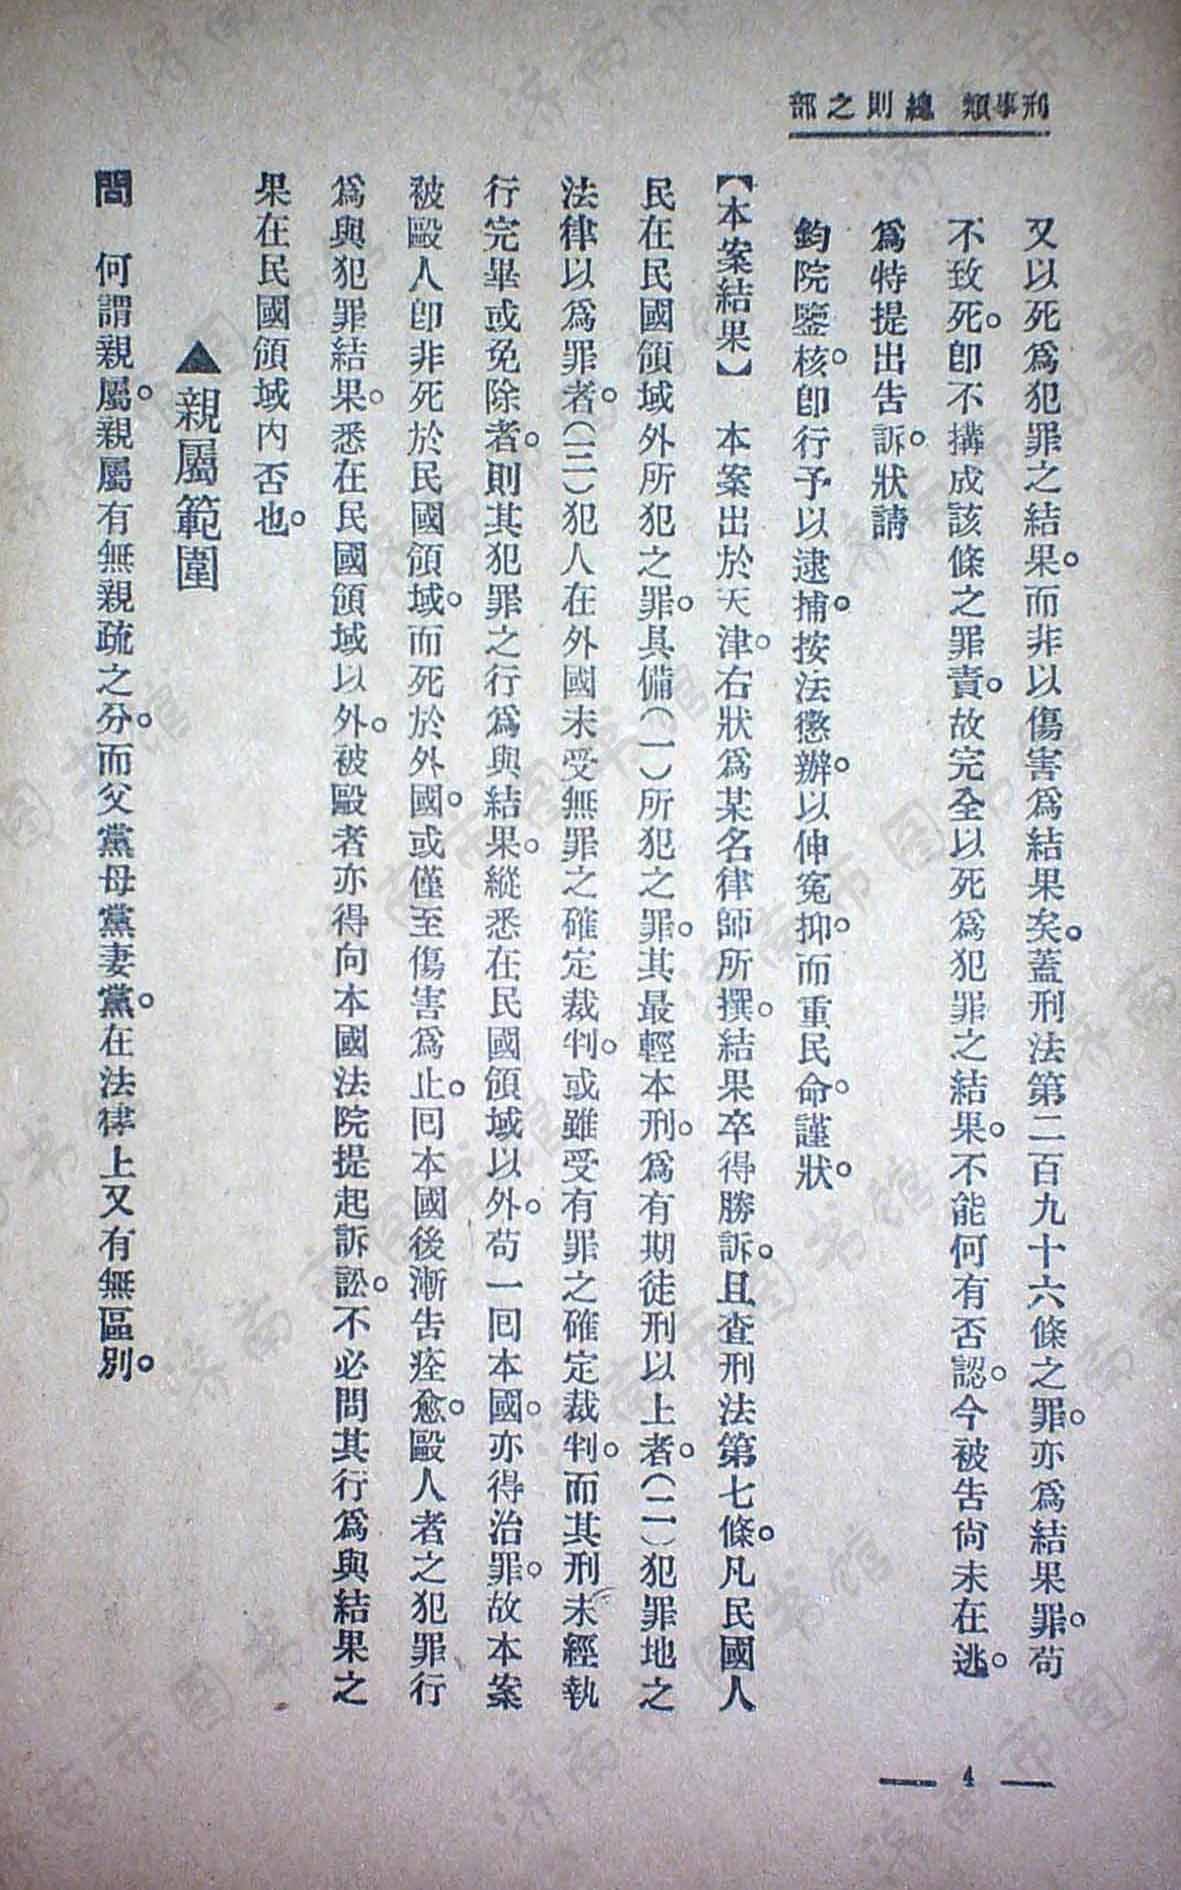 刑事類 總則之部
又以死爲犯罪之結果。而非以傷害爲結果矣。蓋刑法第二百九十六條之罪。亦爲結果罪。苟
不致死。卽不搆成該條之罪責。故完全以死爲犯罪之結果。不能何有否認。今被吿尙未在逃。
爲特提出吿訴。狀請
鈞院鑒核。卽行予以逮捕。按法懲辦。以伸寃抑。而重民命。謹狀。
【本案結果】 本案出於天津。右狀爲某名律師所撰。結果卒得勝訴。且查刑法第七條。凡民國人
民在民國領域外所犯之罪。具備(一)所犯之罪。其最輕本刑。爲有期徒刑以上者。(二)犯罪地之
法律以爲罪者。(三)犯人在外國未受無罪之確定裁判。或雖受有罪之確定裁判。而其刑未經執
行完畢或免除者。則其犯罪之行爲與結果。縱悉在民國領域以外。苟一囘本國。亦得治罪。故本案
被毆人卽非死於民國領域。而死於外國。或僅至傷害爲止。囘本國後漸吿痊愈。毆人者之犯罪行
爲與犯罪結果。悉在民國領域以外。被毆者亦得向本國法院提起訴訟。不必問其行爲與結果之
果在民國領域內否也。
▲親屬範圍
問 何謂親屬。親屬有無親疏之分。而父黨母黨妻黨。在法律上又有無區別。
— 4 —
济南市图书馆